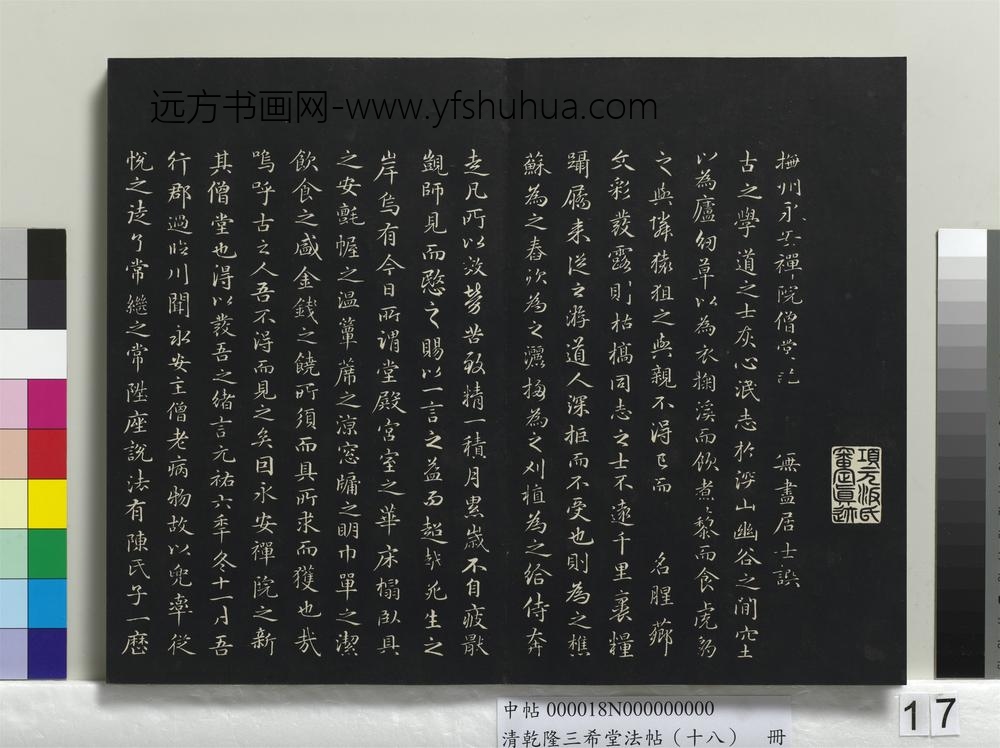 远方书画网-www.yfshuhua.com
撫州永安禪院僧堂記 無盡居士譔
古之學道之士灰心泯志於深山幽谷之間穴土
以為廬紉草以為衣掬溪而飲煮藜而食虎豹
之與憐猿狙之與親不得已而 名腥薌
文彩發露則枯槁同志之士不遠千里裹糧
躡屩來從之游道人深拒而不受也則為之樵
蘇為之舂炊為之灑掃為之刈植為之給侍奔
走凡所以效勞苦致精一積月累歲不自疲厭
覬師見而愍之賜以一言之益而超越死生之
岸烏有今日所謂堂殿宮室之華床榻臥具
之安氈幄之溫簟席之涼窓牖之明巾單之潔
飲食之盛金錢之饒所須而具所求而獲也哉
嗚呼古之人吾不得而見之矣因永安禪院之新
其僧堂也得以發吾之緒言元祐六年冬十一月吾
行郡過臨川聞永安主僧老病物故以兜率從
悅之徒了常繼之常陞座說法有陳氏子一歷
項元汴氏審定真跡
中帖 000018N000000000
清乾隆三希堂法帖(十八) 冊
17